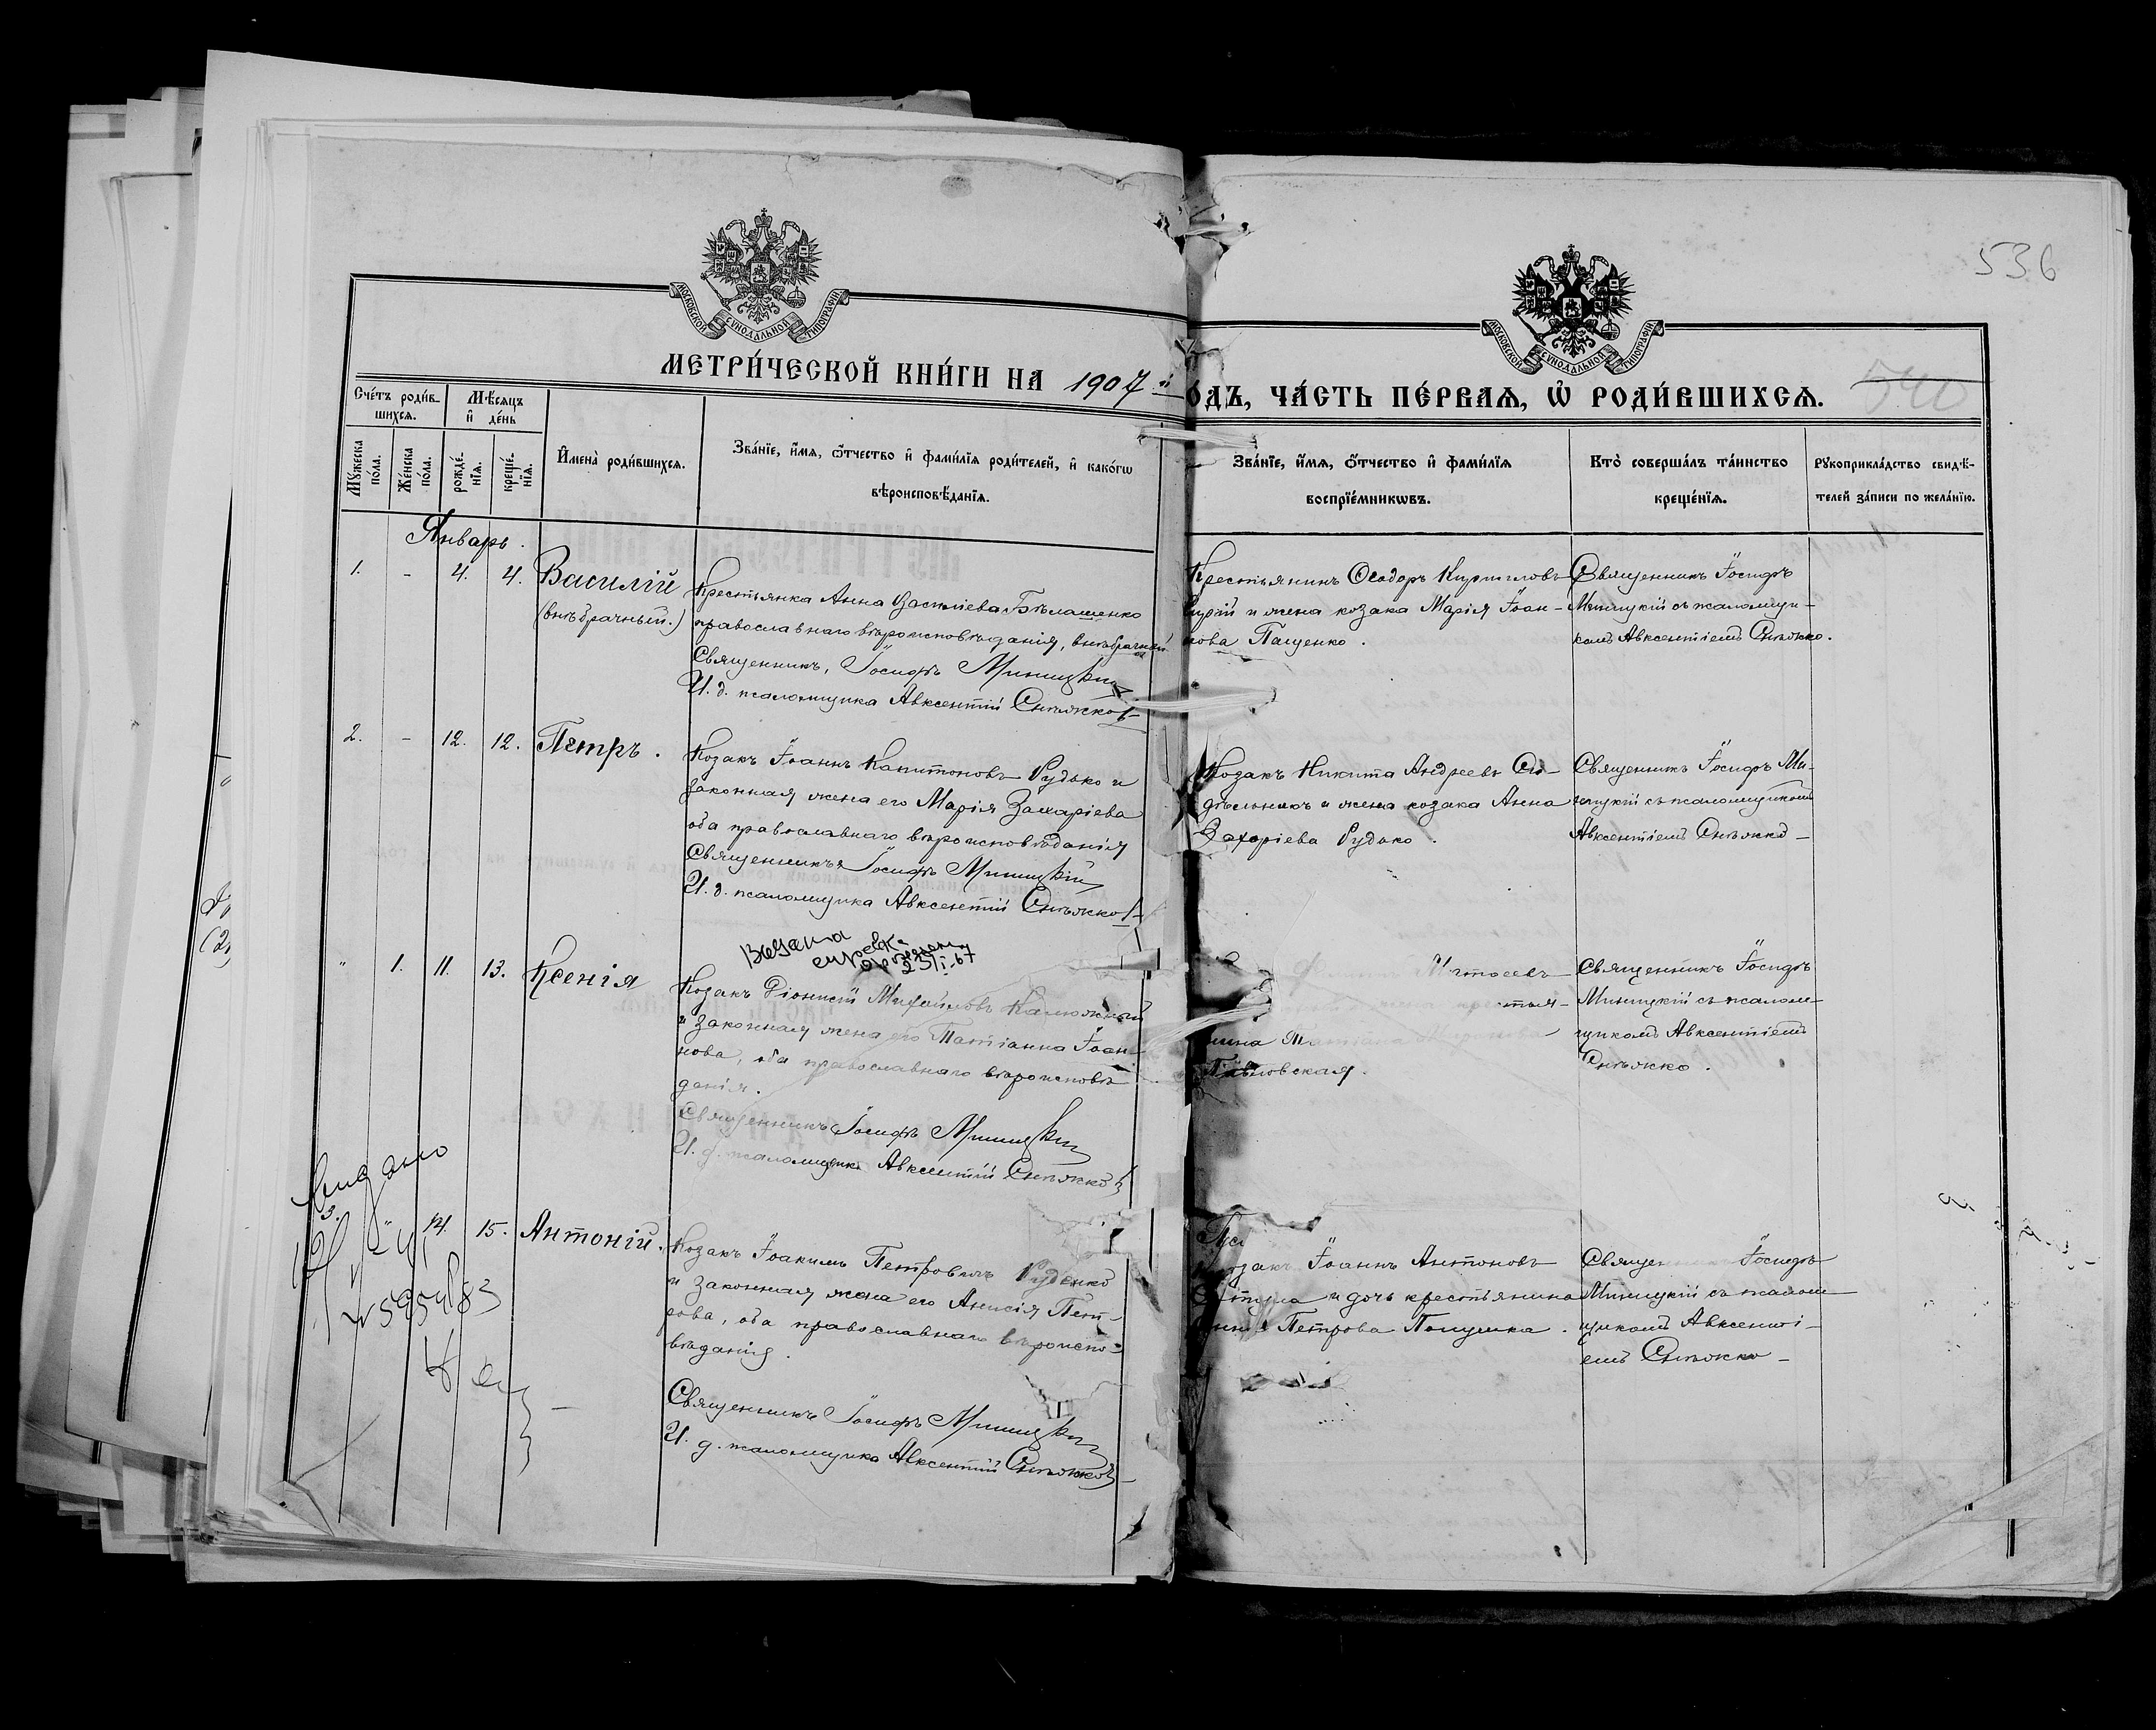 536
МОСКОВСКОЙ СѴНОДАЛЬНОЙ ТИПОГРАФІИ
МОСКОВСКОЙ СѴНОДАЛЬНОЙ ТИПОГРАФІИ
МЕТРИ́ЧЕСКОЙ КНИ́ГИ НА 1907 й
О́ДЪ, ЧА́СТЬ ПЕ́РВАѦ, Ѡ҆ РОДИ́ВШИХСѦ.
540
Сче́тъ роди́в-
шихсѧ.
Мѣ́сѧцъ
и҆ де́нь
Мꙋ́жеска
по́ла.
Же́нска
по́ла.
рожде́-
нїѧ.
креще́-
нїѧ.
И҆мена̀ роди́вшихсѧ.
Зва́нїе, и҆́мѧ, ѻ҆́тчество и҆ фами́лїѧ роди́телей, и҆ како́гѡ
вѣроисповѣ́данїѧ.
Зва́нїе, и҆́мѧ, ѻ҆́тчество и҆ фами́лїѧ
воспрїе́мникѡвъ.
Кто̀ соверша́лъ та́инство
креще́нїѧ.
Рꙋкоприкла́дство свидѣ́-
телей за́писи по жела́нїю.
Январь.
1. - 4. 4. Василій
(внѣбрачный.)
Крестьянка Анна Василіева Бѣлашенко
православнаго вѣроисповѣданія, внѣбрачный
Священникъ, Іосифъ Миницкій
И. д. псаломщика Авксентій Снѣжко
Крестьянинъ Ѳеодоръ Кирилловъ
и жена козака Марія Іоан-
нова Пащенко.
Священникъ Іосифъ
Миницкій съ псаломщи-
комъ Авксентіемъ Снѣжко.
2. - 12. 12. Петръ.
Козакъ Іоаннъ Капитоновъ Рудько и
законная жена его Марія Захаріева
оба православнаго вѣроисповѣданія
Священникъ Іосифъ Миницкій
И. д. псаломщика Авксентій Снѣжко
Козакъ Никита Андреевъ Си-
дѣльникъ и жена козака Анна
Захаріева Рудько.
Священникъ Іосифъ Ми-
ницкій съ псаломщикомъ
Авксентіемъ Снѣжко
" 1. 11. 13. Ксенія
23/I-67
Козакъ Діонисій Михайловъ Калюжный
и законная жена его Татіанна Іоан-
нова, оба православнаго вѣроисповѣ
данія.
Священникъ Іосифъ Миницкій
И. д. псаломщика Авксентій Снѣжко
Татіана
Павловская.
Священникъ Іосифъ
Миницкій съ псалом-
щикомъ Авксентіемъ
Снѣжко.
Видано
3. " 14. 15. Антоній.
Козакъ Іоакимъ Петровичъ Руденко
и законная жена его Анисія Пет-
рова, оба православнаго вѣроиспо-
вѣданія.
Священникъ Іосифъ Миницкій
И. д. псаломщика Авксентій Снѣжко
Іоаннъ Антоновъ
и дочь крестьянина
Петрова
Іосифъ
Миницкій съ псалом
щикомъ Авксенті-
емъ Снѣжко